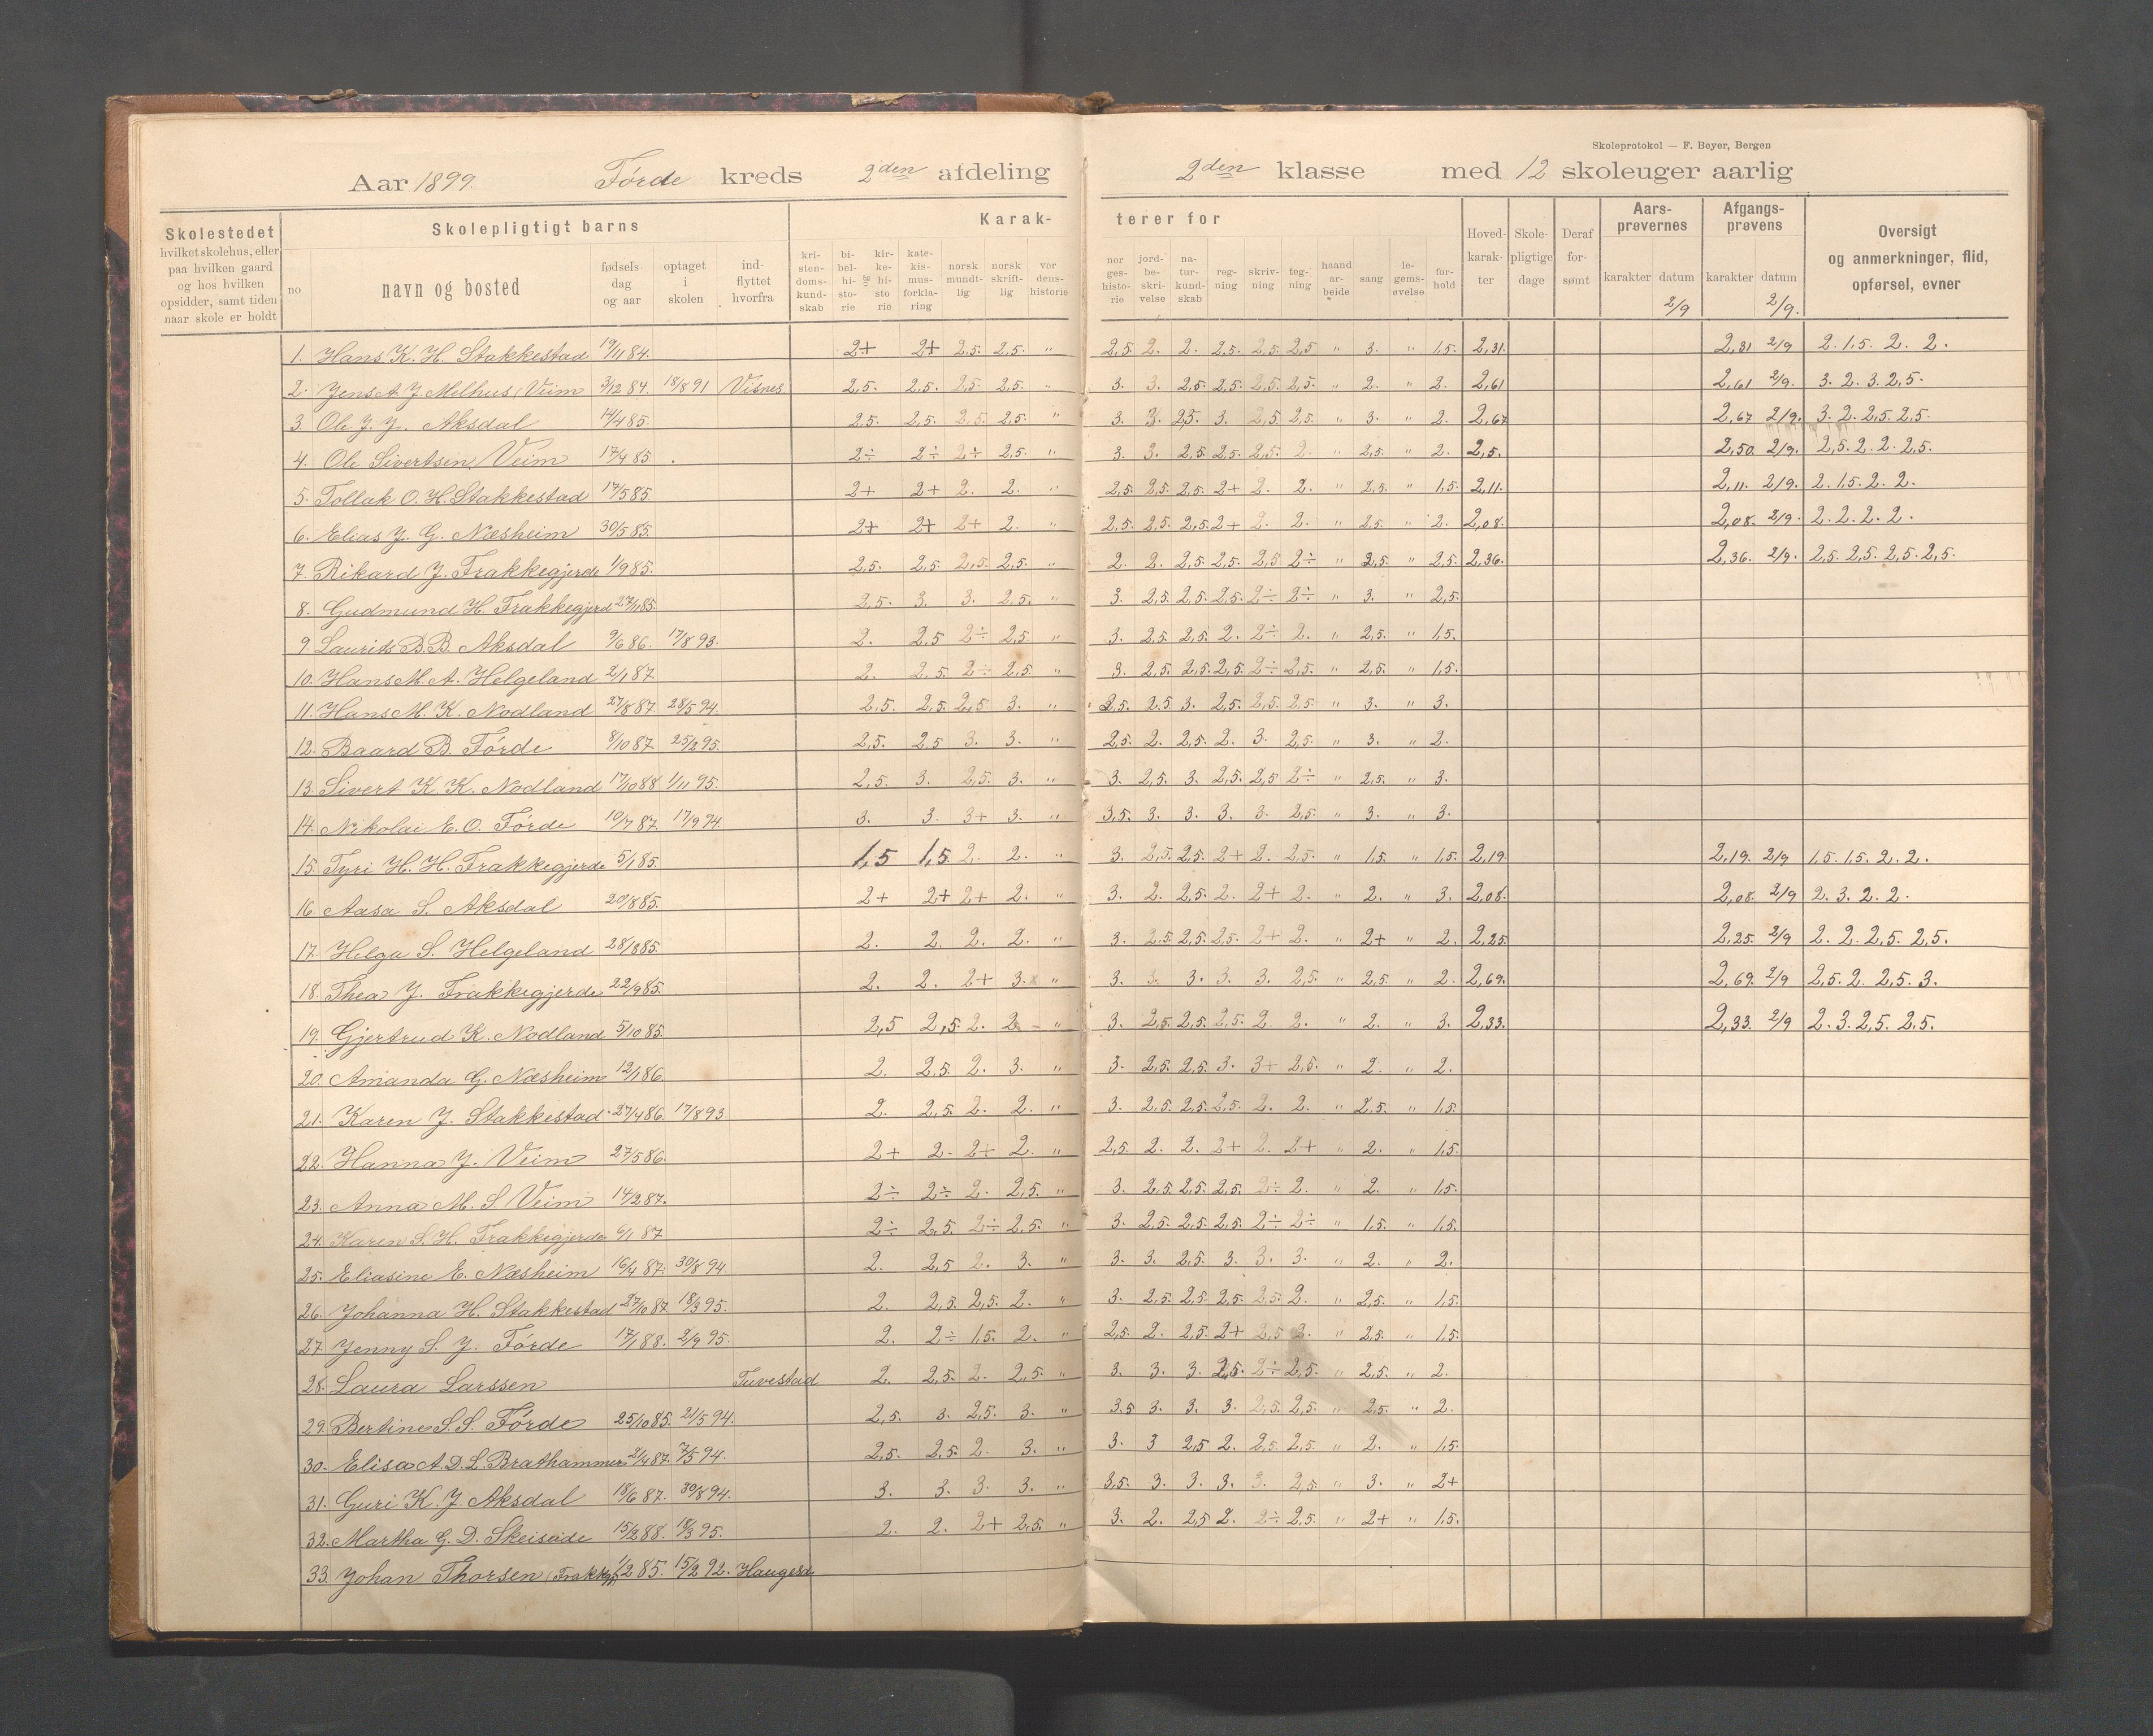 Skoleprotokol — F. Beyer, Bergen
Aar 1899. Førde kreds 2den afdeling 2den klasse med 12 skoleuger aarlig
Skolestedet hvilket skolehus, eller paa hvilken gaard og hos hvilken opsidder, samt tiden naar skole er holdt
Skolepligtigt barns
no navn og bosted fødselsdag og aar optaget i skolen indflyttet hvorfra
Karakterer for
kristendomskundskab bibelhistorie og kirkehistorie katekismusforklaring norsk mundtlig norsk skriftlig verdenshistorie norgeshistorie jordbeskrivelse naturkundskab regning skrivning tegning haandarbeide sang legemsøvelse forhold
Hovedkarakter Skolepligtige dage Deraf forsømt Aarsprøvernes karakter datum 2/9 Afgangsprøvens karakter datum 2/9. Oversigt og anmerkninger, flid, opførsel, evner
1. Hans K. H. Stakkestad 19/11 84. 2+ 2+ 2,5. 2,5. " 2,5. 2. 2. 2,5. 2,5. 2,5 " 3. " 1,5. 2,31. 2,31 2/9 2. 1,5. 2. 2.
2. Jens A. J. Milhus, Veim 3/12 84. 18/8 91 Visnes 2,5. 2,5. 2,5 2,5. " 3. 3. 2,5 2,5. 2,5. 2,5. " 2. " 2. 2,61 2,61 2/9. 3. 2. 3. 2,5.
3 Ole J. J. Aksdal 14/4 85. 2,5. 2,5. 2,5. 2,5. " 3. 3. 2,5. 3. 2,5. 2,5. " 3. " 2. 2,67 2,67 2/9. 3. 2. 2,5. 2,5.
4. Ole Sivertsen Veim 17/4 85. 2÷ 2÷ 2÷ 2,5. " 3. 3. 2,5 2,5. 2,5. 2. " 2,5. " 2. 2,5. 2,50. 2/9. 2,5. 2. 2. 2,5.
5. Tollak O. H. Stakkestad 17/5 85. 2+ 2+ 2. 2. " 2,5. 2,5. 2,5. 2+ 2. 2. " 2,5. " 1,5. 2,11. 2,11. 2/9. 2. 1,5. 2. 2.
6. Elias J. G. Næsheim 30/5 85. 2+ 2+ 2+ 2. " 2,5. 2,5. 2,5. 2+ 2. 2. " 2,5. " 2. 2,08. 2,08. 2/9. 2. 2. 2. 2.
7. Rikard J. Frakkegjerde 1/9 85. 2,5. 2,5. 2,5. 2,5. " 2. 2. 2,5. 2,5. 2,5 2÷ " 2,5. " 2,5. 2,36. 2,36. 2/9. 2,5. 2,5. 2,5. 2,5.
8. Gudmund H. Frakkegjerd 27/11 85. 2,5. 3. 3. 2,5. " 3. 2,5. 2,5. 2,5. 2÷ 2÷ " 3. " 2,5.
9. Laurits B. B. Aksdal 9/6 86. 17/8 93. 2. 2,5 2÷ 2,5. " 3. 2,5. 2,5. 2. 2÷ 2. " 2,5. " 1,5.
10. Hans M. A. Helgeland 2/1 87. 2. 2,5. 2÷ 2,5. " 3. 2,5. 2,5. 2,5. 2÷ 2,5. " 2,5. " 1,5.
11. Hans M. K. Nodland 27/8 87. 28/5 94. 2,5. 2,5. 2,5 3. " 2,5. 2,5 3. 2,5. 2,5. 2,5. " 3. " 3.
12. Baard B. Førde 8/10 87. 25/2 95. 2,5. 2,5 3. 3. " 2,5. 2. 2,5. 2. 3. 2,5. " 3. " 2.
13. Sivert K. K. Nodland 17/10 88 1/11 95. 2,5. 3. 2,5. 3. " 3. 2,5. 3. 2,5. 2,5 2÷ " 2,5. " 3.
14. Nikolai E. O. Førde 10/7 87. 17/9 94. 3. 3. 3+ 3. " 3,5. 3. 3. 3. 3. 2,5. " 3. " 3.
15. Tyri H. H. Frakkegjerde 5/1 85. 1,5 1,5 2. 2. " 3. 2,5. 2,5. 2+ 2. 2,5. " 1,5. " 1,5. 2,19. 2,19. 2/9 1,5. 1,5. 2. 2.
16. Aasa S. Aksdal 20/8 85. 2+ 2+ 2+ 2. " 3. 2. 2,5. 2. 2+ 2. " 2. " 3. 2,08. 2,08. 2/9 2. 3. 2. 2.
17. Helga S. Helgeland 28/8 85. 2. 2. 2. 2. " 3. 2,5. 2,5. 2,5. 2+ 2. " 2+ " 2. 2,25. 2,25. 2/9 2. 2. 2,5. 2,5.
18. Thea J. Frakkegjerde 22/9 85. 2. 2. 2+ 3. " 3. 3. 3. 3. 3. 2,5. " 2,5. " 2. 2,69. 2,69. 2/9 2,5. 2. 2,5. 3.
19. Gjertrud K. Nodland 5/10 85. 2,5 2,5. 2. 2. " 3. 2,5. 2,5. 2,5. 2. 2. " 2. " 3. 2,33. 2,33. 2/9 2. 3. 2,5. 2,5.
20. Amanda G. Næsheim 12/1 86. 2. 2,5. 2. 3. " 3. 2,5. 2,5. 3. 3+ 2,5. " 2. " 2.
21. Karen J. Stakkestad 27/4 86. 17/8 93 2. 2,5. 2. 2. " 3. 2,5. 2,5. 2,5. 2. 2. " 2,5. " 1,5.
22. Hanna J. Veim 27/5 86. 2+ 2. 2+ 2. " 2,5. 2. 2. 2+ 2. 2+ " 2. " 1,5.
23. Anna M. S. Veim 14/2 87. 2÷ 2÷ 2. 2,5. " 3. 2,5. 2,5. 2,5. 2÷ 2. " 2. " 1,5.
24. Karen S. H. Frakkegjerde 6/1 87 2÷ 2,5. 2÷ 2,5. " 3. 2,5. 2,5. 2,5. 2÷ 2÷ " 1,5. " 1,5.
25. Eliasine E. Næsheim 16/4 87. 30/8 94 2. 2,5 2. 3. " 3. 3. 2,5. 3. 3. 3. " 2. " 2.
26. Johanna H. Stakkestad 27/10 87. 18/3 95. 2. 2,5. 2,5. 2. " 3. 2,5. 2,5. 2,5. 2,5. 2. " 2,5. " 1,5.
27. Jenny S. J. Førde 17/1 88. 2/9 95. 2. 2÷ 1,5. 2. " 2,5. 2. 2,5. 2+ 2,5 2. " 2,5. " 1,5.
28. Laura Larssen Tuvestad 2. 2,5. 2. 2,5. " 3. 3. 3. 2,5. 2÷ 2,5. " 2,5. " 2.
29. Bertine S. S. Førde 25/10 85. 21/5 94. 2,5. 3. 2,5. 3. " 3,5 3. 3. 3. 2,5. 2,5. " 2,5. " 2.
30. Elisa A. D. L. Brathammer 2/4 87. 7/5 94. 2,5. 2,5. 2. 3. " 3. 3 2,5 2. 2,5. 2,5. " 2. " 1,5.
31. Guri K. J. Aksdal 18/6 87. 30/8 94. 3. 3. 3. 3. " 3,5. 3. 3. 3. 3. 2,5. " 3. " 2+
32. Martha G. D. Skeiseide 15/2 88. 18/3 95. 2. 2. 2+ 2,5. " 3. 2. 2,5 2. 2÷ 2,5. " 2+ " 1,5.
33. Johan Thorsen 1/2 85. 15/2 92. Haugesd.